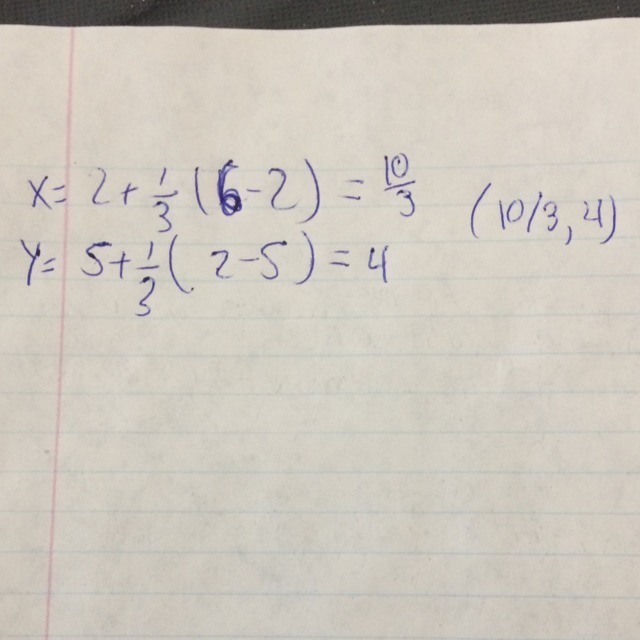 X = 2 + 1/3 (6 - 2) = 10/3 (10/3, 4)
Y = 5 + 1/3 (2 - 5) = 4